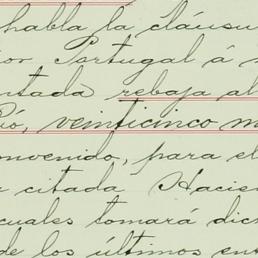 habla la cláusu
Portugal á
rebaja al
veinticinco m
onvenido, para el
citada Hacien
cuales tomará dic
de los últimos